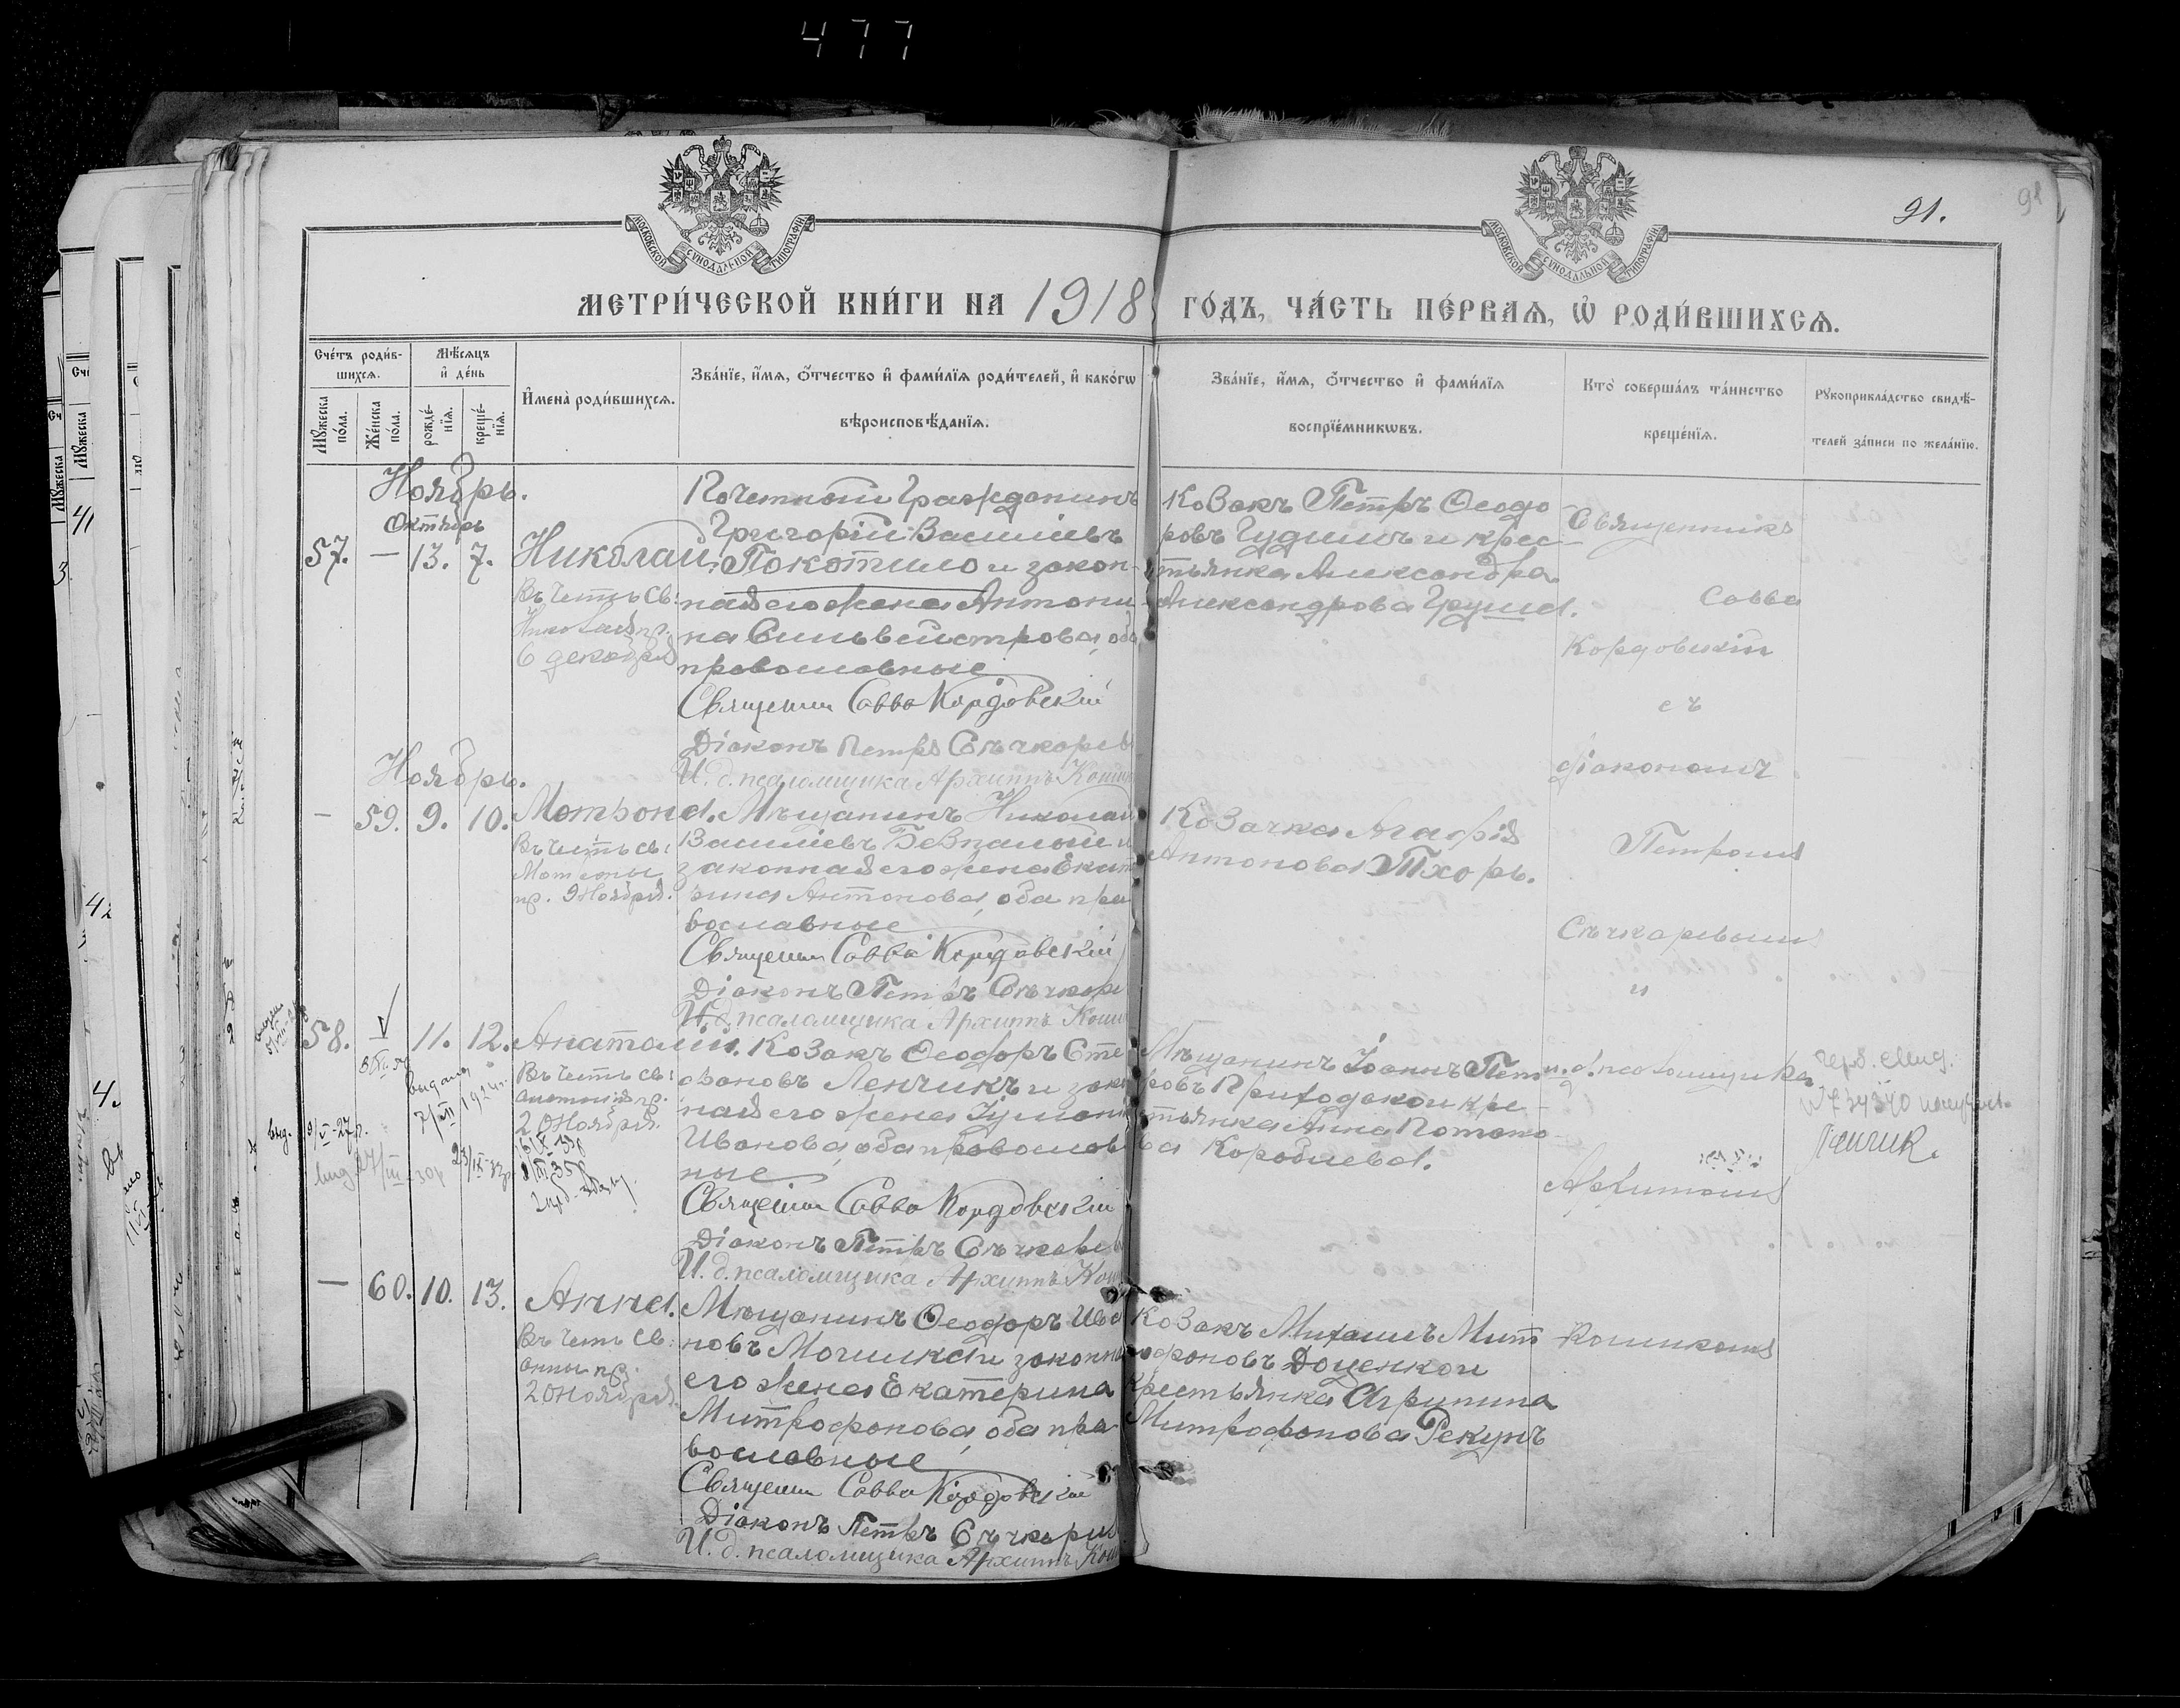 477
91.
91
МОСКОВСКОЙ СѴНОДАЛЬНОЙ ТИПОГРАФІИ
МОСКОВСКОЙ СѴНОДАЛЬНОЙ ТИПОГРАФІИ
МЕТРИ́ЧЕСКОЙ КНИ́ГИ НА 1918 ГО́ДЪ, ЧА́СТЬ ПЕ́РВАѦ, Ѡ҆ РОДИ́ВШИХСѦ.
Сче́тъ роди́в-
шихсѧ.
Мѣ́сѧцъ
и҆ де́нь
Мꙋ́жеска
по́ла.
Же́нска
по́ла.
рожде́-
нїѧ.
креще́-
нїѧ.
И҆мена̀ роди́вшихсѧ.
Зва́нїе, и҆́мѧ, ѻ҆́тчество и҆ фами́лїѧ роди́телей, и҆ како́гѡ
вѣроисповѣ́данїѧ.
Зва́нїе, и҆́мѧ, ѻ҆́тчество и҆ фами́лїѧ
воспрїе́мникѡвъ.
Кто̀ соверша́лъ та́инство
креще́нїѧ.
Рꙋкоприкла́дство свидѣ́-
телей за́писи по жела́нїю.
Ноябрь.
Октябрь
57. — 13. 7. Николай.
Въ честь св:
Николая пр.
6 декабря
Почетный Гражданинъ
Григорій Васильевъ
Покотило и закон-
ная его жена Антони
на Сильвестрова, оба
православные
Священик Савва Кордовскій
Діаконъ Петръ Сѣчкаревъ
И. д. псаломщика Архиппъ Кошик
Козакъ Петръ Ѳеодо
ровъ Гудимъ и крес-
тьянка Александра
Александрова Груша.
Священникъ
Савва
Кордовскій
съ
діакономъ
Петромъ
Сѣчкаревымъ
и
и. д. псаломщика
Архипомъ
Кошикомъ
Ноябрь.
— 59. 9. 10. Матрона.
Въ честь св:
Матроны
пр. 9 Ноября.
Мѣщанинъ Николай
Васильевъ Безпалый и
законная его жена Екате
рина Антонова, оба пра
вославные
Священик Савва Кордовскій
Діаконъ Петръ Сѣчкаре
И. д. псаломщика Архиппъ Коши
Козачка Агафія
Антонова Тхорь.
58. 11. 12. Анатолій.
Въ честь св:
Анатолія пр.
20 Ноября.
Козакъ Ѳеодоръ Сте
фановъ Ленчикъ и зако
ная его жена Іуліанія
Иванова, оба православ
ные
Священик Савва Кордовскій
Діаконъ Петръ Сѣчкарев
И. д. псаломщика Архиппъ Кош
Мѣщанинъ Іоаннъ Пет
ровъ Приходской и кре-
стьянка Анна Потапо-
ва Коробнева.
выдана
7/VII 1924г.
выд. 9/V-27р.
— 60. 10. 13. Анна.
Въ честь св:
Анны пр.
20 Ноября.
Мѣщанинъ Ѳеодоръ Ива
новъ Могилка и законна
его жена Екатерина
Митрофанова, оба пра-
вославные
Священик Савва Кордовскій
Діаконъ Петръ Сѣчкарев
И. д. псаломщика Архиппъ Кош
Козакъ Михаилъ Мит
рофановъ Доценко и
крестьянка Агрипина
Митрофанова Рекунъ